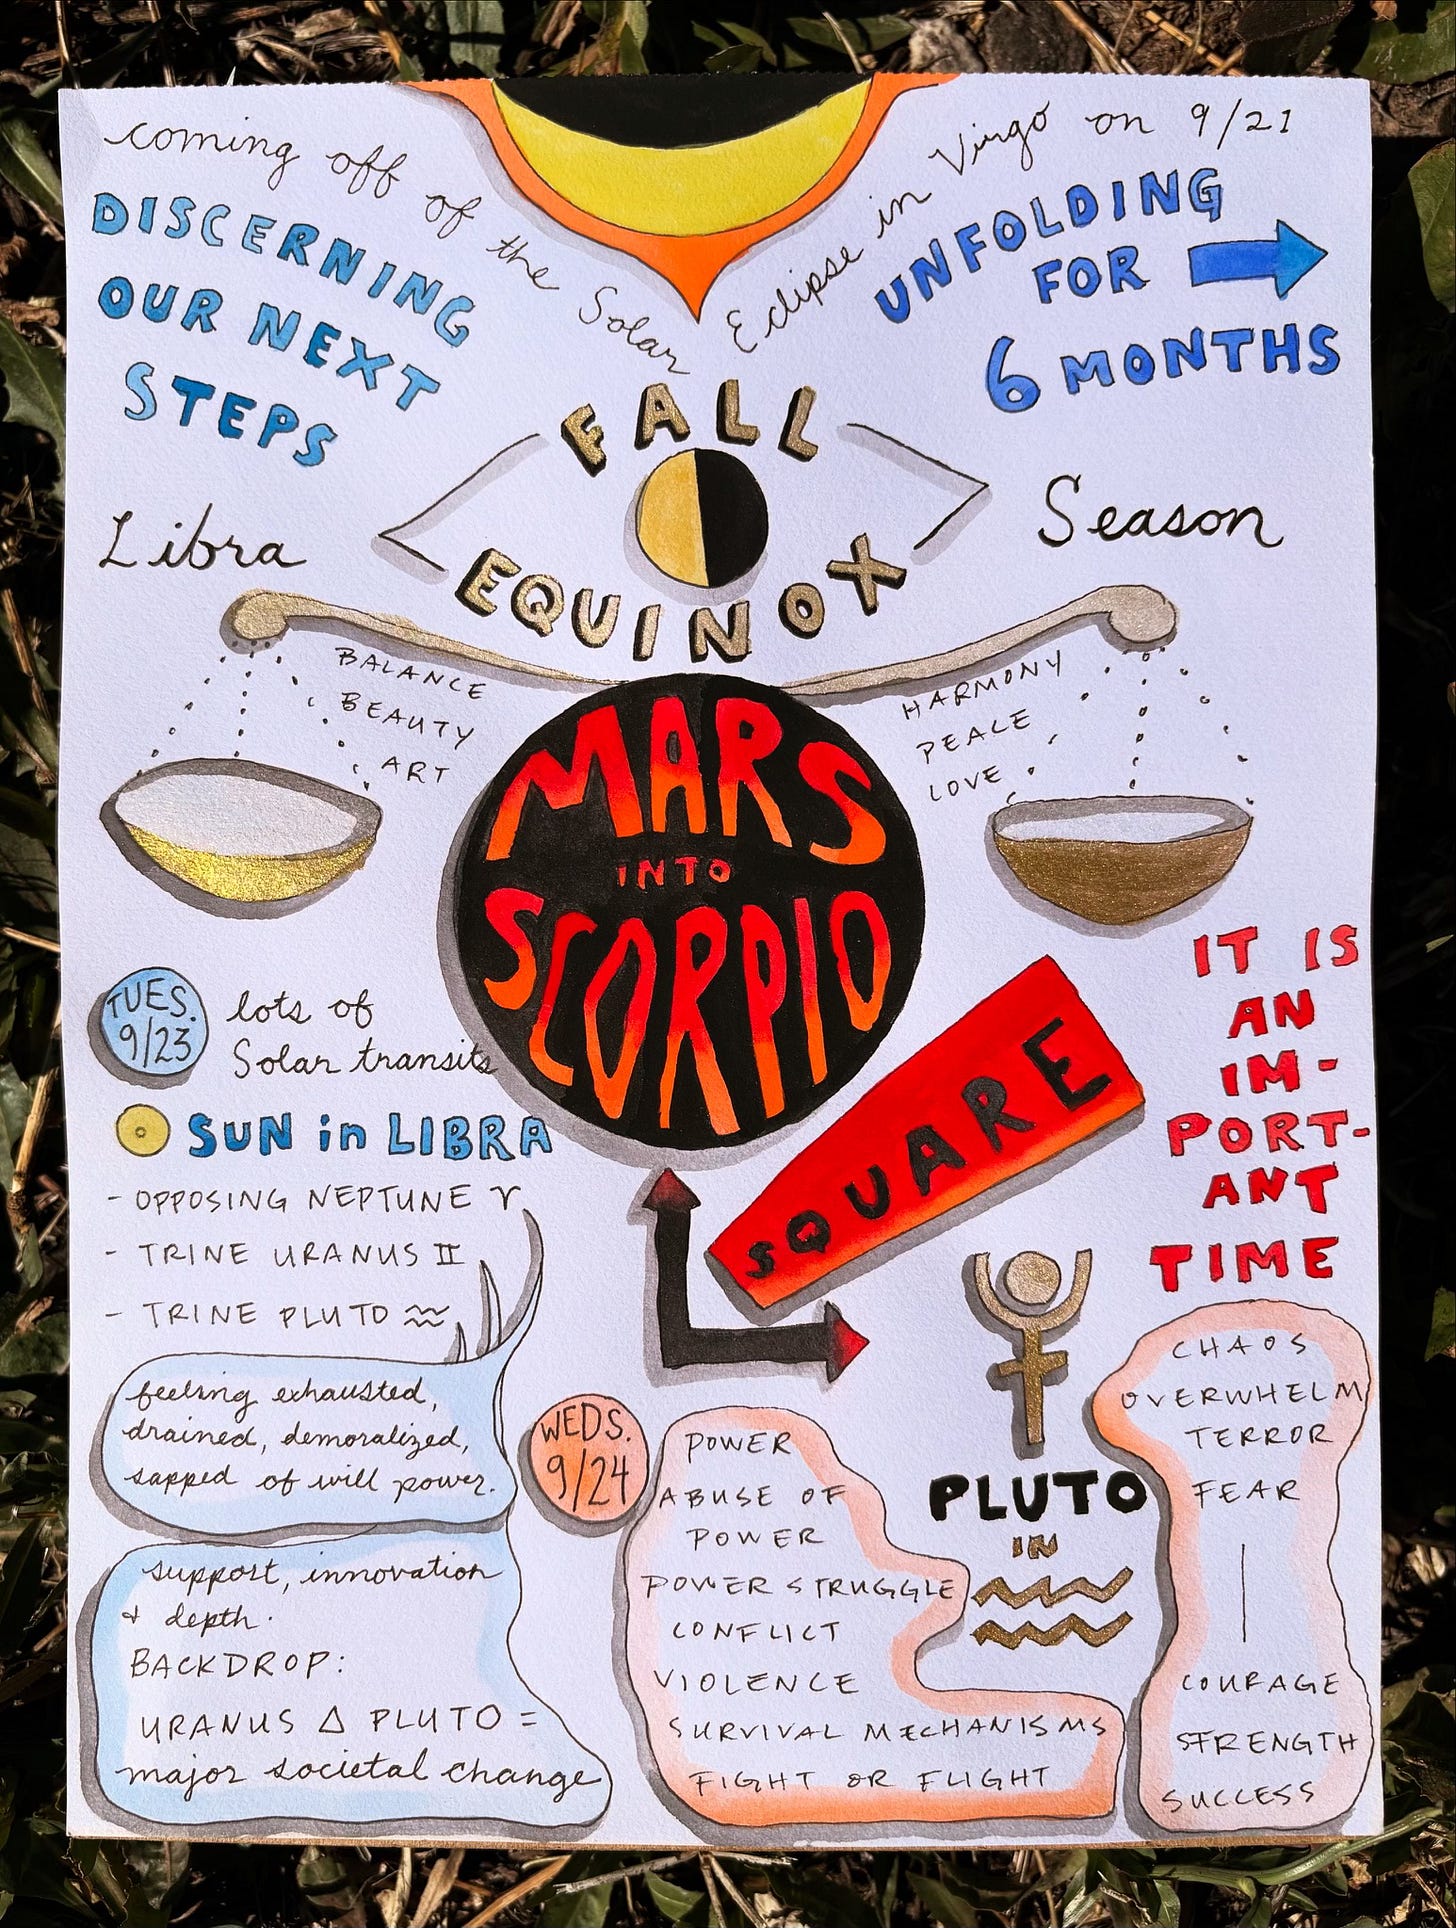 coming off of the Solar Eclipse in Virgo on 9/21
DISCERNING
OUR NEXT
STEPS
UNFOLDING
FOR
6 MONTHS
FALL
EQUINOX
Libra Season
BALANCE
BEAUTY
ART
HARMONY
PEACE
LOVE
MARS
INTO
SCORPIO
TUES.
9/23
lots of
Solar transits
SUN in LIBRA
- OPPOSING NEPTUNE ♈
- TRINE URANUS ♊
- TRINE PLUTO ♒
feeling exhausted,
drained, demoralized,
sapped of will power.
support, innovation
& depth.
BACKDROP:
URANUS △ PLUTO =
major societal change
SQUARE
IT IS
AN
IM-
PORT-
ANT
TIME
WEDS.
9/24
POWER
ABUSE OF
POWER
POWER STRUGGLE
CONFLICT
VIOLENCE
SURVIVAL MECHANISMS
FIGHT OR FLIGHT
PLUTO
IN
♒
CHAOS
OVERWHELM
TERROR
FEAR
|
COURAGE
STRENGTH
SUCCESS